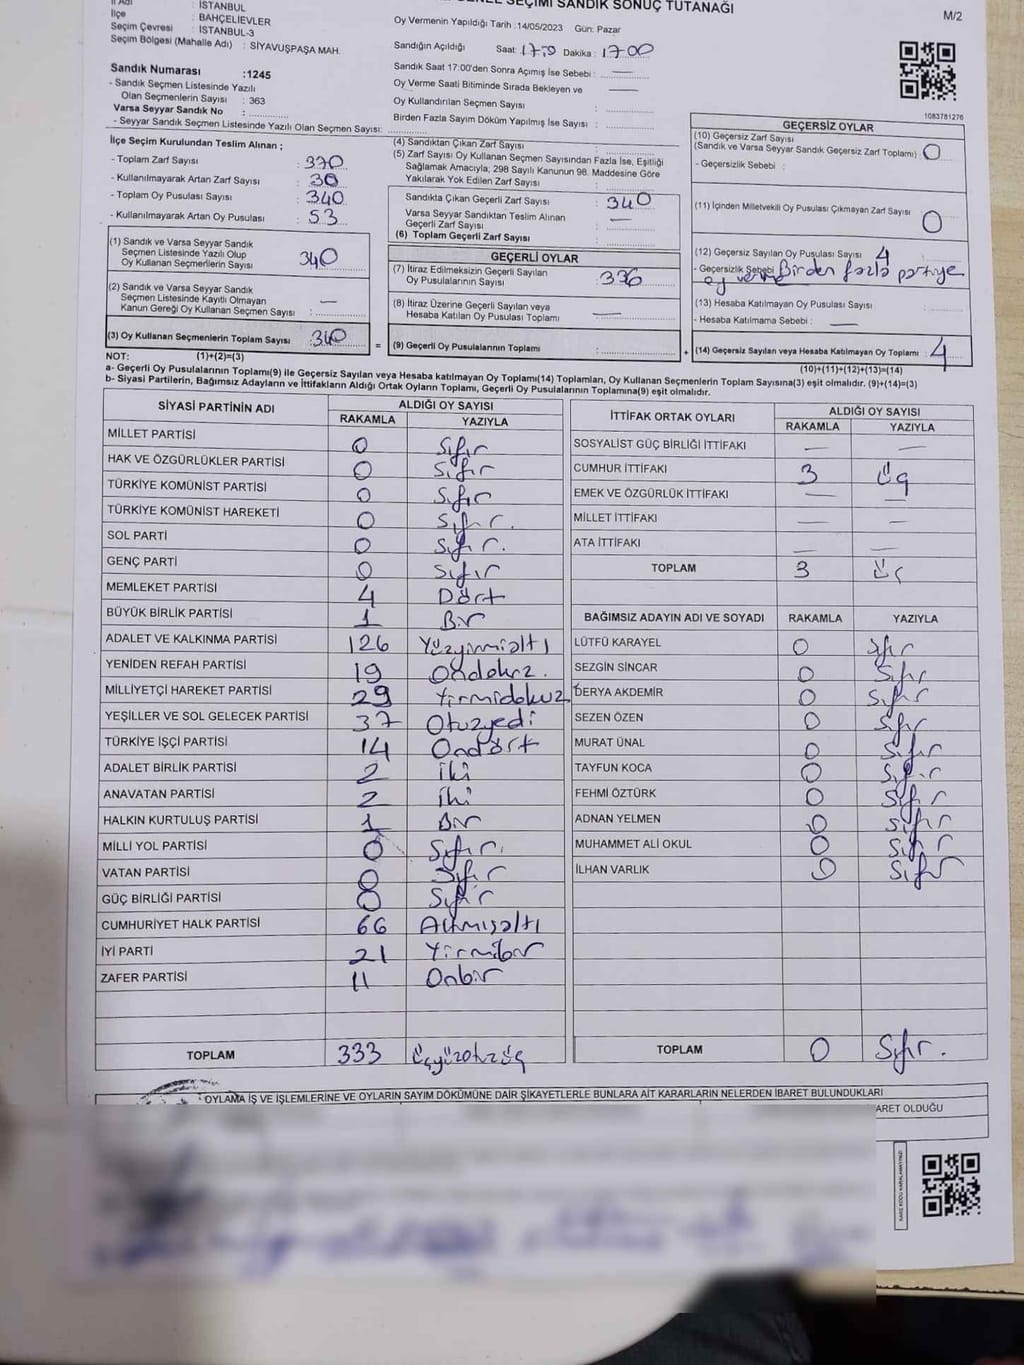 GENEL SEÇİMİ SANDIK SONUÇ TUTANAĞI
M/2
İl Adı : İSTANBUL
İlçe : BAHÇELİEVLER
Seçim Çevresi : İSTANBUL-3
Seçim Bölgesi (Mahalle Adı) : SİYAVUŞPAŞA MAH.
Oy Vermenin Yapıldığı Tarih :14/05/2023 Gün: Pazar
Sandığın Açıldığı Saat: Dakika : 17:00
Sandık Saat 17:00'den Sonra Açımış İse Sebebi : —
Oy Verme Saati Bitiminde Sırada Bekleyen ve —
Oy Kullandırılan Seçmen Sayısı :
Birden Fazla Sayım Döküm Yapılmış İse Sayısı :
Sandık Numarası :1245
- Sandık Seçmen Listesinde Yazılı
Olan Seçmenlerin Sayısı : 363
Varsa Seyyar Sandık No :
- Seyyar Sandık Seçmen Listesinde Yazılı Olan Seçmen Sayısı:
1083781276
İlçe Seçim Kurulundan Teslim Alınan ;
- Toplam Zarf Sayısı : 370
- Kullanılmayarak Artan Zarf Sayısı : 30
- Toplam Oy Pusulası Sayısı : 340
- Kullanılmayarak Artan Oy Pusulası : 53
(1) Sandık ve Varsa Seyyar Sandık
Seçmen Listesinde Yazılı Olup
Oy Kullanan Seçmenlerin Sayısı : 340
(2) Sandık ve Varsa Seyyar Sandık
Seçmen Listesinde Kayıtlı Olmayan
Kanun Gereği Oy Kullanan Seçmen Sayısı : —
(3) Oy Kullanan Seçmenlerin Toplam Sayısı : 340
(4) Sandıktan Çıkan Zarf Sayısı :
(5) Zarf Sayısı Oy Kullanan Seçmen Sayısından Fazla İse, Eşitliği
Sağlamak Amacıyla; 298 Sayılı Kanunun 98. Maddesine Göre
Yakılarak Yok Edilen Zarf Sayısı :
Sandıkta Çıkan Geçerli Zarf Sayısı : 340
Varsa Seyyar Sandıktan Teslim Alınan
Geçerli Zarf Sayısı : —
(6) Toplam Geçerli Zarf Sayısı :
GEÇERLİ OYLAR
(7) İtiraz Edilmeksizin Geçerli Sayılan
Oy Pusulasının Sayısı : 336
(8) İtiraz Üzerine Geçerli Sayılan veya
Hesaba Katılan Oy Pusulası Toplamı : —
= (9) Geçerli Oy Pusulalarının Toplamı :
GEÇERSİZ OYLAR
(10) Geçersiz Zarf Sayısı
(Sandık ve Varsa Seyyar Sandık Geçersiz Zarf Toplamı) : 0
- Geçersizlik Sebebi :
(11) İçinden Milletvekili Oy Pusulası Çıkmayan Zarf Sayısı : 0
(12) Geçersiz Sayılan Oy Pusulası Sayısı : 4
- Geçersizlik Sebebi : Birden fazla partiye
oy verme
(13) Hesaba Katılmayan Oy Pusulası Sayısı :
- Hesaba Katılmama Sebebi : —
+ (14) Geçersiz Sayılan veya Hesaba Katılmayan Oy Toplamı : 4
NOT: (1)+(2)=(3)
(10)+(11)+(12)+(13)=(14)
a- Geçerli Oy Pusulalarının Toplamı(9) ile Geçersiz Sayılan veya Hesaba katılmayan Oy Toplamı(14) Toplamları, Oy Kullanan Seçmenlerin Toplam Sayısına(3) eşit olmalıdır. (9)+(14)=(3)
b- Siyasi Partilerin, Bağımsız Adayların ve İttifakların Aldığı Ortak Oyların Toplamı, Geçerli Oy Pusulalarının Toplamına(9) eşit olmalıdır.
SİYASİ PARTİNİN ADI ALDIĞI OY SAYISI
RAKAMLA YAZIYLA
MİLLET PARTİSİ 0 Sıfır
HAK VE ÖZGÜRLÜKLER PARTİSİ 0 Sıfır
TÜRKİYE KOMÜNİST PARTİSİ 0 Sıfır
TÜRKİYE KOMÜNİST HAREKETİ 0 Sıfır.
SOL PARTİ 0 Sıfır.
GENÇ PARTİ 0 Sıfır
MEMLEKET PARTİSİ 4 Dört
BÜYÜK BİRLİK PARTİSİ 1 Bir
ADALET VE KALKINMA PARTİSİ 126 Yüzyirmialtı
YENİDEN REFAH PARTİSİ 19 Ondokuz.
MİLLİYETÇİ HAREKET PARTİSİ 29 Yirmidokuz
YEŞİLLER VE SOL GELECEK PARTİSİ 37 Otuzyedi
TÜRKİYE İŞÇİ PARTİSİ 14 Ondört
ADALET BİRLİK PARTİSİ 2 İki
ANAVATAN PARTİSİ 2 İki
HALKIN KURTULUŞ PARTİSİ 1 Bir
MİLLİ YOL PARTİSİ 0 Sıfır.
VATAN PARTİSİ 0 Sıfır
GÜÇ BİRLİĞİ PARTİSİ 0 Sıfır
CUMHURİYET HALK PARTİSİ 66 Altmışaltı
İYİ PARTİ 21 Yirmibir
ZAFER PARTİSİ 11 Onbir
TOPLAM 333 Üçyüzotuzüç
İTTİFAK ORTAK OYLARI ALDIĞI OY SAYISI
RAKAMLA YAZIYLA
SOSYALİST GÜÇ BİRLİĞİ İTTİFAKI — —
CUMHUR İTTİFAKI 3 Üç
EMEK VE ÖZGÜRLÜK İTTİFAKI — —
MİLLET İTTİFAKI — —
ATA İTTİFAKI — —
TOPLAM 3 Üç
BAĞIMSIZ ADAYIN ADI VE SOYADI RAKAMLA YAZIYLA
LÜTFÜ KARAYEL 0 Sıfır
SEZGİN SİNCAR 0 Sıfır
DERYA AKDEMİR 0 Sıfır
SEZEN ÖZEN 0 Sıfır
MURAT ÜNAL 0 Sıfır
TAYFUN KOCA 0 Sıfır
FEHMİ ÖZTÜRK 0 Sıfır
ADNAN YELMEN 0 Sıfır
MUHAMMET ALİ OKUL 0 Sıfır
İLHAN VARLIK 0 Sıfır
TOPLAM 0 Sıfır.
OYLAMA İŞ VE İŞLEMLERİNE VE OYLARIN SAYIM DÖKÜMÜNE DAİR ŞİKAYETLERLE BUNLARA AİT KARARLARIN NELERDEN İBARET BULUNDUKLARI
ARET OLDUĞU